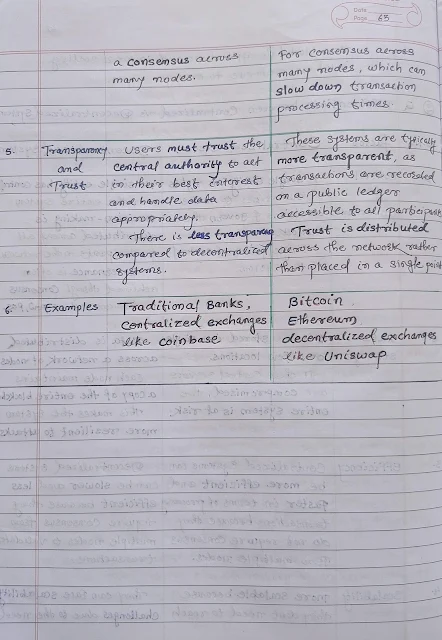 Date
Page 65
a consensus across
many nodes.
For consensus across
many nodes, which can
slow down transaction
processing times.
5. Transparency
and
Trust
Users must trust the
central authority to act
in their best interest
and handle data
appropriately.
There is less transparency
compared to decentralized
systems.
These systems are typically
more transparent, as
transactions are recorded
on a public ledger
accessible to all participants
Trust is distributed
across the network rather
than placed in a single point
6. Examples
Traditional Banks,
Centralized exchanges
like coinbase
Bitcoin
Ethereum
decentralized exchanges
like Uniswap